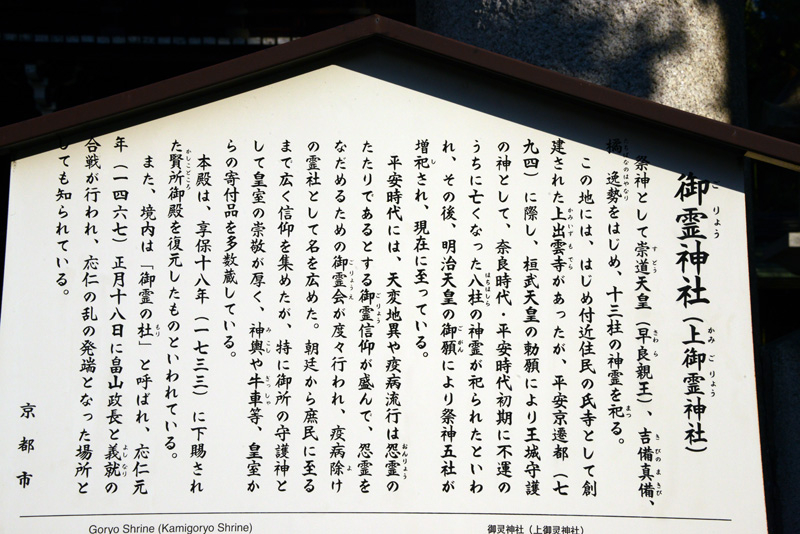 御霊神社(上御霊神社)
祭神として崇道天皇(早良親王)、吉備真備、
橘逸勢をはじめ、十三柱の神霊を祀る。
この地には、はじめ付近住民の氏寺として創
建された上出雲寺があったが、平安京遷都(七
九四)に際し、桓武天皇の勅願により王城守護
の神として、奈良時代・平安時代初期に不運の
うちに亡くなった八柱の神霊が祀られたといわ
れ、その後、明治天皇の御願により祭神五社が
増祀され、現在に至っている。
平安時代には、天変地異や疫病流行は怨霊の
たたりであるとする御霊信仰が盛んで、怨霊を
なだめるための御霊会が度々行われ、疫病除け
の霊社として名を広めた。朝廷から庶民に至る
まで広く信仰を集めたが、特に御所の守護神と
して皇室の崇敬が厚く、神輿や牛車等、皇室か
らの寄付品を多数蔵している。
本殿は、享保十八年(一七三三)に下賜され
た賢所御殿を復元したものといわれている。
また、境内は「御霊の杜」と呼ばれ、応仁元
年(一四六七)正月十八日に畠山政長と義就の
合戦が行われ、応仁の乱の発端となった場所と
しても知られている。
京都市
Goryo Shrine (Kamigoryo Shrine)
御灵神社(上御灵神社)